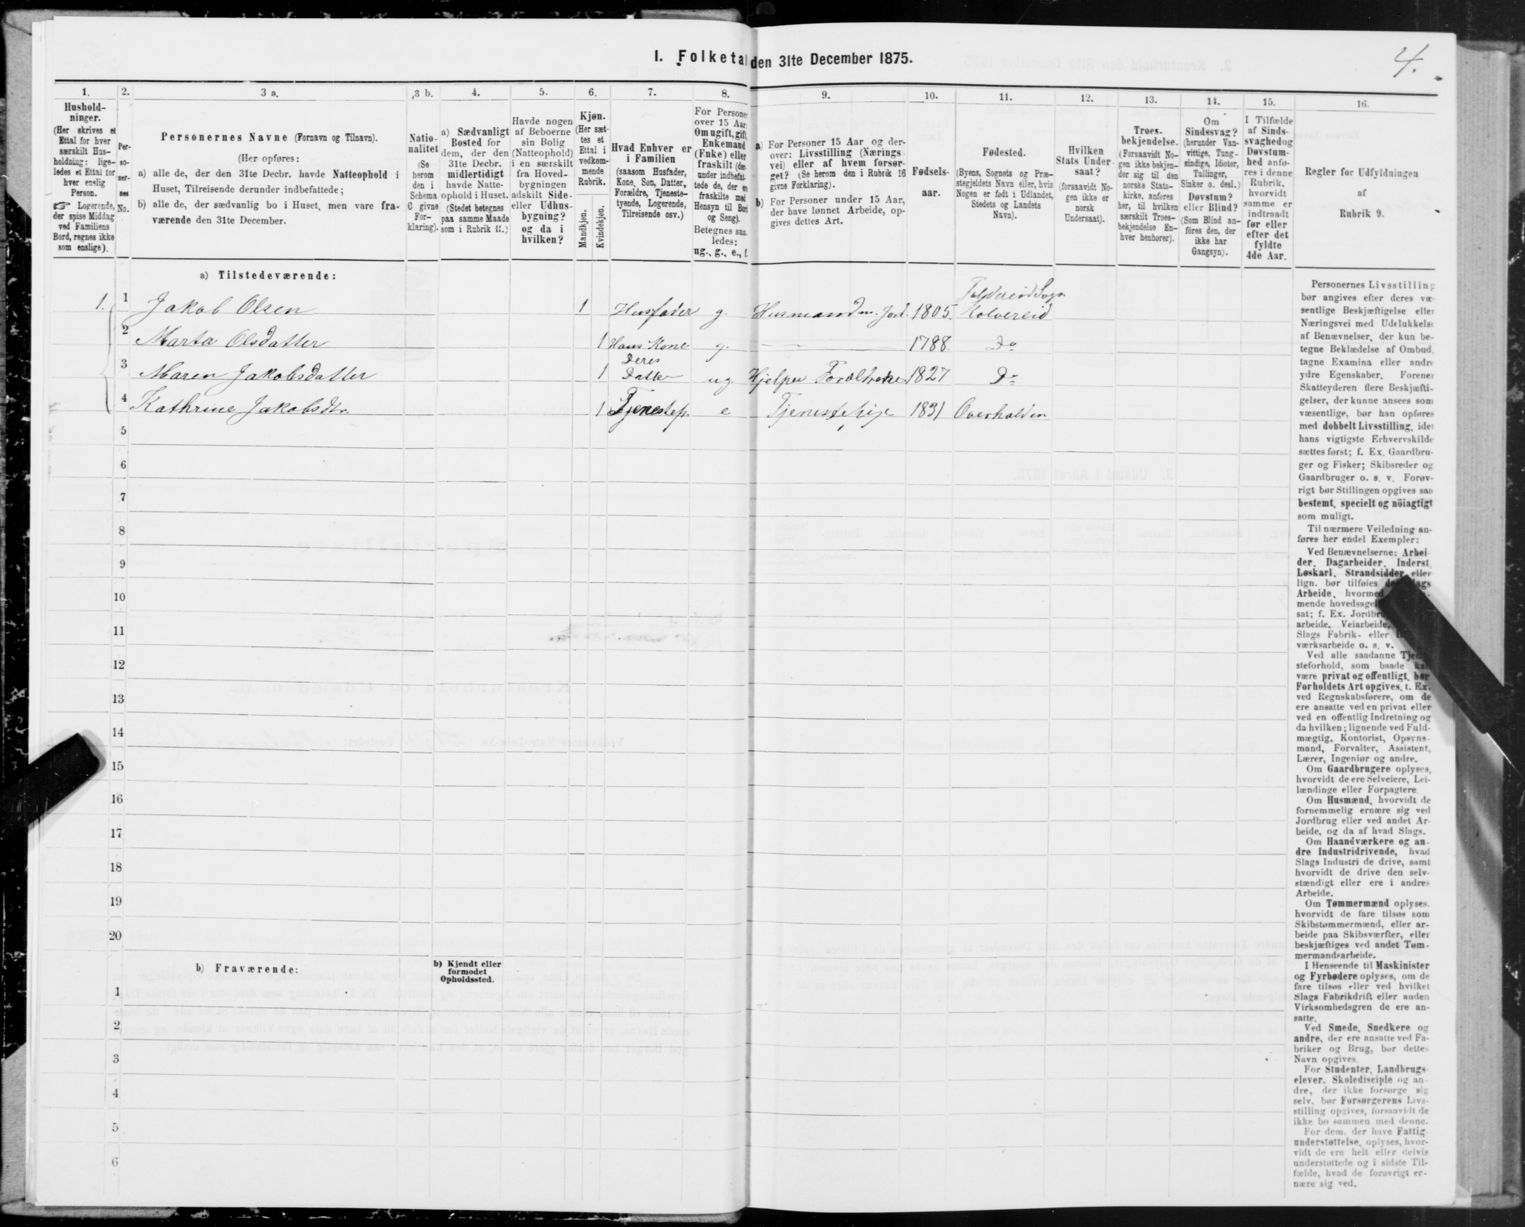 4.
I. Folketal den 31te December 1875.
1.
2.
3 a.
3 b.
4.
5.
6.
7.
8.
9.
10.
11.
12.
13.
14.
15.
16.
Hushold-
ninger.
(Her skrives et
Ettal for hver
særskilt Hus-
holdning; lige-
ledes et Ettal for
hver enslig
Person.
☞ Logerende,
der spise Middag
ved Familiens
Bord, regnes ikke
som enslige).
Per-
so-
ner-
nes
No.
Personernes Navne (Fornavn og Tilnavn).
(Her opføres:
a) alle de, der den 31te Decbr. havde Natteophold i
Huset, Tilreisende derunder indbefattede;
b) alle de, der sædvanlig bo i Huset, men vare fra-
værende den 31te December.
Natio-
nalitet
(Se
herom
den i
Schema
C givne
For-
klaring).
a) Sædvanligt
Bosted for
dem, der den
31te Decbr.
midlertidigt
havde Natte-
ophold i Huset.
(Stedet betegnes
paa samme Maade
som i Rubrik 11.)
Havde nogen
af Beboerne
sin Bolig
(Natteophold)
i en særskilt
fra Hoved-
bygningen
adskilt Side-
eller Udhus-
bygning?
og da i
hvilken?
Kjøn.
(Her sæt-
tes et
Ettal i
vedkom-
mende
Rubrik.
Mandkjøn.
Kvindekjøn.
Hvad Enhver er
i Familien
(saasom Husfader,
Kone, Søn, Datter,
Forældre, Tjeneste-
tyende, Logerende,
Tilreisende osv.)
For Persone
over 15 Aar
Om ugift, gift
Enkemand
(Enke) eller
fraskilt (de
under indbefat
tede de, der e
fraskilte med
Hensyn til Bo
og Seng).
Betegnes saa
ledes:
ug., g., e., f.
a) For Personer 15 Aar og der-
over: Livsstilling (Nærings-
vei) eller af hvem forsør-
get? (Se herom den i Rubrik 16
givne Forklaring).
b) For Personer under 15 Aar,
der have lønnet Arbeide, op-
gives dettes Art.
Fødsels-
aar.
Fødested.
(Byens, Sognets og Præ-
stegjeldets Navn eller, hvis
Nogen er født i Udlandet,
Stedets og Landets
Navn).
Hvilken
Stats Under-
saat?
(forsaavidt No-
gen ikke er
norsk
Undersaat).
Troes-
bekjendelse.
(Forsaavidt No-
gen ikke bekjen-
der sig til den
norske Stats-
kirke, anføres
her, til hvilken
særskilt Troes-
bekjendelse En-
hver henhører).
Om
Sindssvag?
(herunder Van-
vittige, Tung-
sindige, Idioter,
Tullinger,
Sinker o. desl.)
Døvstum?
eller Blind?
(Som Blind an-
føres den, der
ikke har
Gangsyn).
I Tilfælde
af Sinds-
svaghed og
Døvstum-
hed anfø-
res i denne
Rubrik,
hvorvidt
samme er
indtraadt
før eller
efter det
fyldte
4de Aar.
Regler for Udfyldningen
af
Rubrik 9.
a) Tilstedeværende:
1. 1 Jakob Olsen 1 Husfader g. Husmand m. Jord 1805 Foldereid Sogn Kolvereid
2 Marta Olsdatter 1 Hans Kone g. — — 1788 Do
3 Maren Jakobsdatter 1 Deres Datter ug. Hjelper Forældrene 1827 Do
4 Kathrine Jakobsdtr 1 Tjenestep. e Tjenestepige 1831 Overhalden
5
6
7
8
9
10
11
12
13
14
15
16
17
18
19
20
b) Fraværende:
b) Kjendt eller
formodet
Opholdssted.
1
2
3
4
5
6
Personernes Livsstilling
bør angives efter deres væ-
sentlige Beskjæftigelse eller
Næringsvei med Udelukkelse
af Benævnelser, der kun be-
tegne Beklædelse af Ombud,
tagne Examina eller andre
ydre Egenskaber. Forener
Skatteyderen flere Beskjæfti-
gelser, der kunne ansees som
væsentlige, bør han opføres
med dobbelt Livsstilling, idet
hans vigtigste Erhvervskilde
sættes først; f. Ex. Gaardbru-
ger og Fisker; Skibsreder og
Gaardbruger o. s. v. Forøv-
rigt bør Stillingen opgives saa
bestemt, specielt og nöiagtigt
som muligt.
Til nærmere Veiledning an-
føres her endel Exempler:
Ved Benævnelserne: Arbei-
der, Dagarbeider, Inderst,
Løskarl, Strandsidder eller
lign. bør tilføies det Slags
Arbeide, hvormed
mende hovedsagel
sat; f. Ex. Jordbr
arbeide, Veiarbeide,
Slags Fabrik- eller
værksarbeide o. s. v.
Ved alle saadanne Tjene-
steforhold, som baade kan
være privat og offentligt, bør
Forholdets Art opgives, t. Ex.
ved Regnskabsførere, om de
ere ansatte ved en privat eller
ved en offentlig Indretning og
da hvilken; lignende ved Fuld-
mægtig, Kontorist, Opsyns-
mand, Forvalter, Assistent,
Lærer, Ingeniør og andre.
Om Gaardbrugere oplyses,
hvorvidt de ere Selveiere, Lei-
lændinge eller Forpagtere.
Om Husmænd, hvorvidt de
fornemmelig ernære sig ved
Jordbrug eller ved andet Ar-
beide, og da af hvad Slags.
Om Haandværkere og an-
dre Industridrivende, hvad
Slags Industri de drive, samt
hvorvidt de drive den selv-
stændigt eller ere i andres
Arbeide.
Om Tømmermænd oplyses,
hvorvidt de fare tilsøs som
Skibstømmermænd, eller ar-
beide paa Skibsværfter, eller
beskjæftiges ved andet Tøm-
mermandsarbeide.
I Henseende til Maskinister
og Fyrbødere oplyses, om de
fare tilsøs eller ved hvilket
Slags Fabrikdrift eller anden
Virksomhedsgren de ere an-
satte.
Ved Smede, Snedkere og
andre, der ere ansatte ved Fa-
briker og Brug, bør dettes
Navn opgives.
For Studenter, Landbrugs-
elever, Skoledisciple og an-
dre, der ikke forsørge sig
selv, bør Forsørgerens Livs-
stilling opgives, forsaavidt de
ikke bo sammen med denne.
For dem, der have Fattig-
understøttelse, oplyses, hvor-
vidt de ere helt eller delvis
understøttede og i sidste Til-
fælde, hvad de forøvrigt er-
nære sig ved.